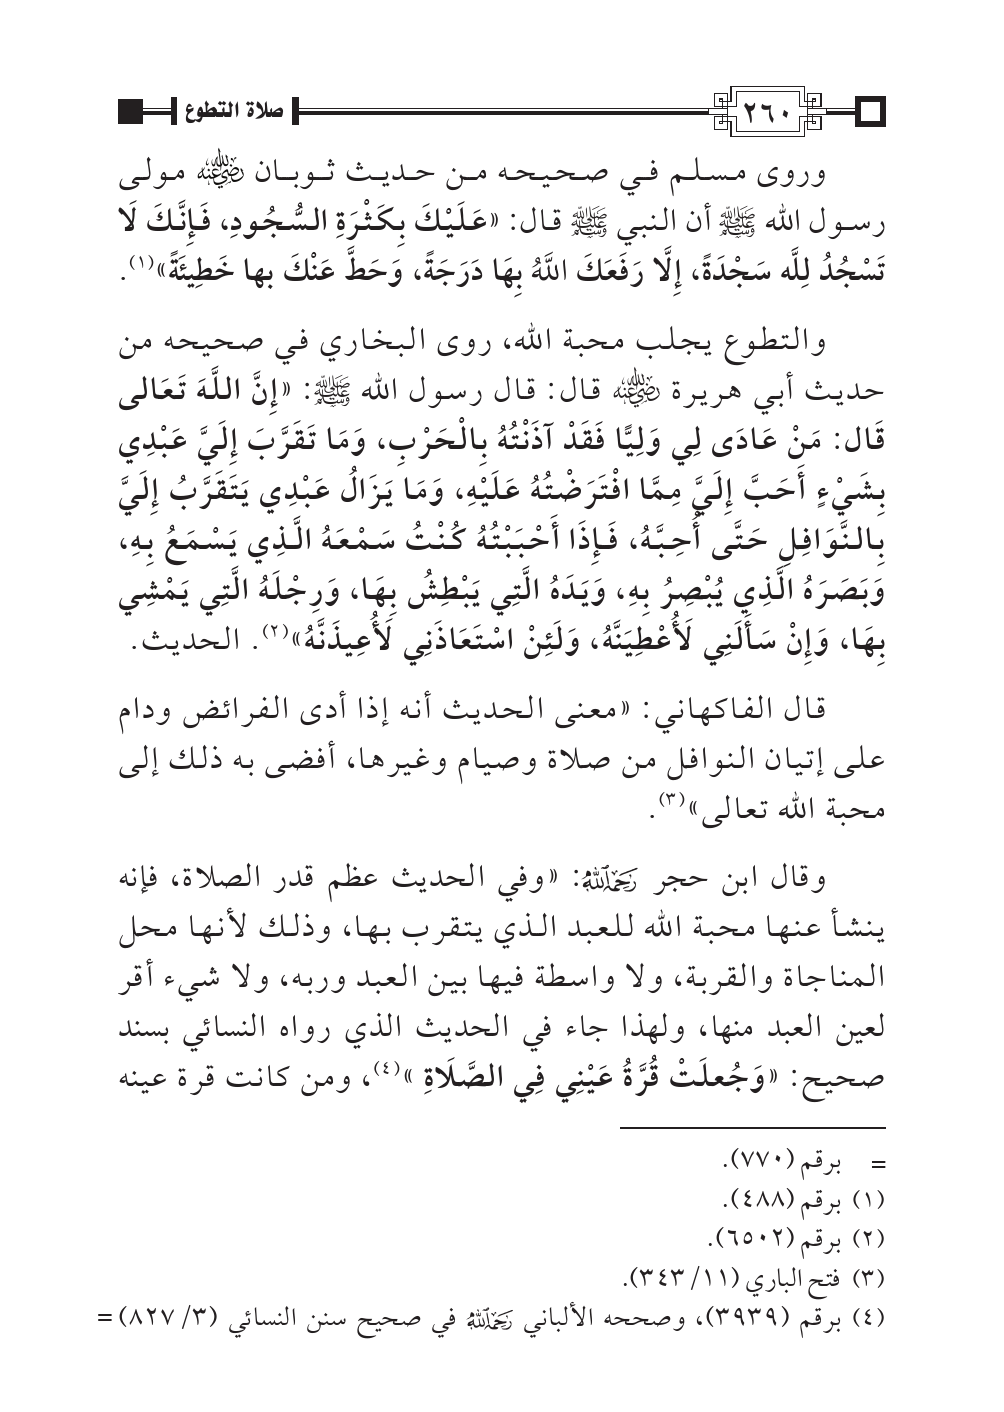 ٢٦٠
صلاة التطوع
وروى مسلم في صحيحه من حديث ثوبان رضي الله عنه مولى
رسول الله ﷺ أن النبي ﷺ قال: «عَلَيْكَ بِكَثْرَةِ السُّجُودِ، فَإِنَّكَ لَا
تَسْجُدُ لِلَّه سَجْدَةً، إِلَّا رَفَعَكَ اللَّهُ بِهَا دَرَجَةً، وَحَطَّ عَنْكَ بها خَطِيئَةً»(١).
والتطوع يجلب محبة الله، روى البخاري في صحيحه من
حديث أبي هريرة رضي الله عنه قال: قال رسول الله ﷺ: «إِنَّ اللَّهَ تَعَالى
قَال: مَنْ عَادَى لِي وَلِيًّا فَقَدْ آذَنْتُهُ بِالْحَرْبِ، وَمَا تَقَرَّبَ إِلَيَّ عَبْدِي
بِشَيْءٍ أَحَبَّ إِلَيَّ مِمَّا افْتَرَضْتُهُ عَلَيْهِ، وَمَا يَزَالُ عَبْدِي يَتَقَرَّبُ إِلَيَّ
بِالنَّوَافِلِ حَتَّى أُحِبَّهُ، فَإِذَا أَحْبَبْتُهُ كُنْتُ سَمْعَهُ الَّذِي يَسْمَعُ بِهِ،
وَبَصَرَهُ الَّذِي يُبْصِرُ بِهِ، وَيَدَهُ الَّتِي يَبْطِشُ بِهَا، وَرِجْلَهُ الَّتِي يَمْشِي
بِهَا، وَإِنْ سَأَلَنِي لَأُعْطِيَنَّهُ، وَلَئِنْ اسْتَعَاذَنِي لَأُعِيذَنَّهُ»(٢). الحديث.
قال الفاكهاني: «معنى الحديث أنه إذا أدى الفرائض ودام
على إتيان النوافل من صلاة وصيام وغيرها، أفضى به ذلك إلى
محبة الله تعالى»(٣).
وقال ابن حجر رحمه الله: «وفي الحديث عظم قدر الصلاة، فإنه
ينشأ عنها محبة الله للعبد الذي يتقرب بها، وذلك لأنها محل
المناجاة والقربة، ولا واسطة فيها بين العبد وربه، ولا شيء أقر
لعين العبد منها، ولهذا جاء في الحديث الذي رواه النسائي بسند
صحيح: «وَجُعلَتْ قُرَّةُ عَيْنِي فِي الصَّلَاةِ »(٤)، ومن كانت قرة عينه
= برقم (٧٧٠).
(١) برقم (٤٨٨).
(٢) برقم (٦٥٠٢).
(٣) فتح الباري (١١/ ٣٤٣).
(٤) برقم (٣٩٣٩)، وصححه الألباني رحمه الله في صحيح سنن النسائي (٣/ ٨٢٧) =